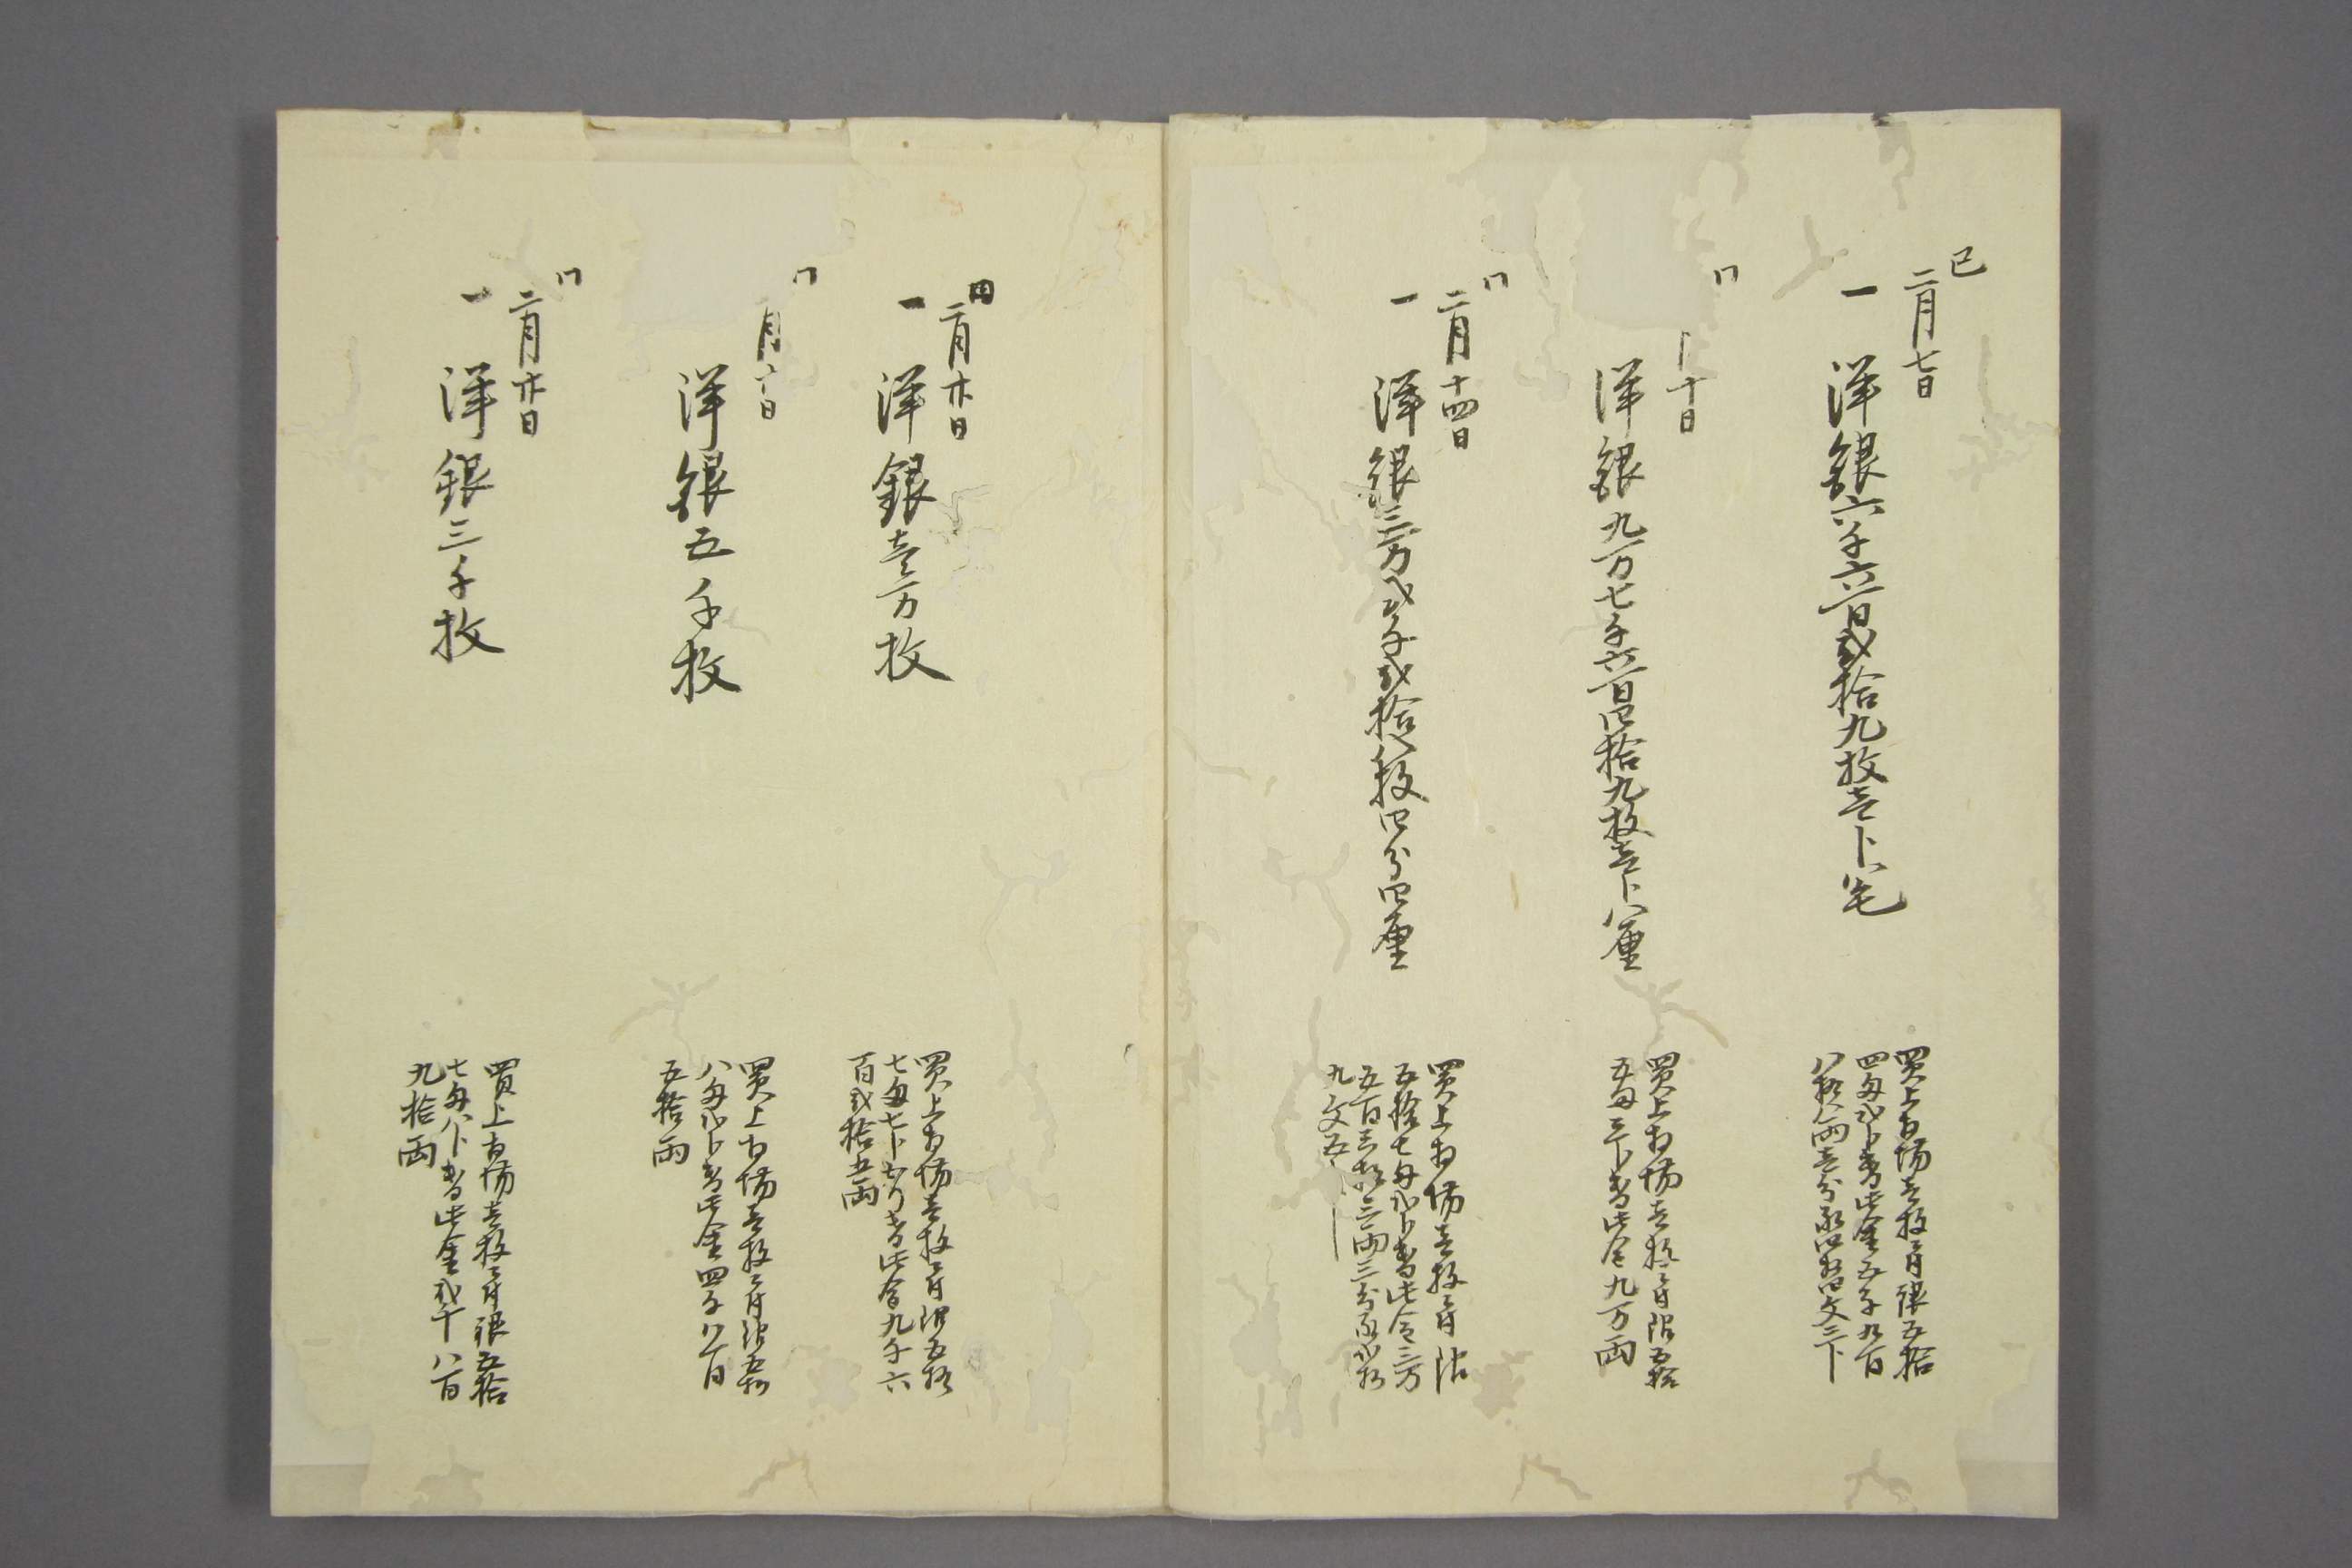 巳
二月七日
一 洋銀六千六百弐拾九枚壱卜八毛
買上相場壱枚ニ付銀五拾
四匁弐卜替此金五千九百
八拾八両壱分永四拾四文三卜
同
十日
洋銀九万七千六百四拾九枚壱卜八厘
買上相場壱枚ニ付銀五拾
五匁三卜替此金九万両
同
二月十四日
一 洋銀三万弐千弐拾八枚四分四厘
買上相場壱枚ニ付銀
五拾七匁弐卜替此金三万
五百三拾三両三分永弐拾
九文五
同
二月日
一 洋銀壱万枚
買上相場壱枚ニ付銀五拾
七匁七卜五り替此金九千六
百弐拾五両
同
月日
洋銀五千枚
買上相場壱枚ニ付銀五拾
八匁弐卜替此金四千八百
五拾両
同
二月日
一 洋銀三千枚
買上相場壱枚ニ付銀五拾
七匁八卜替此金弐千八百
九拾両